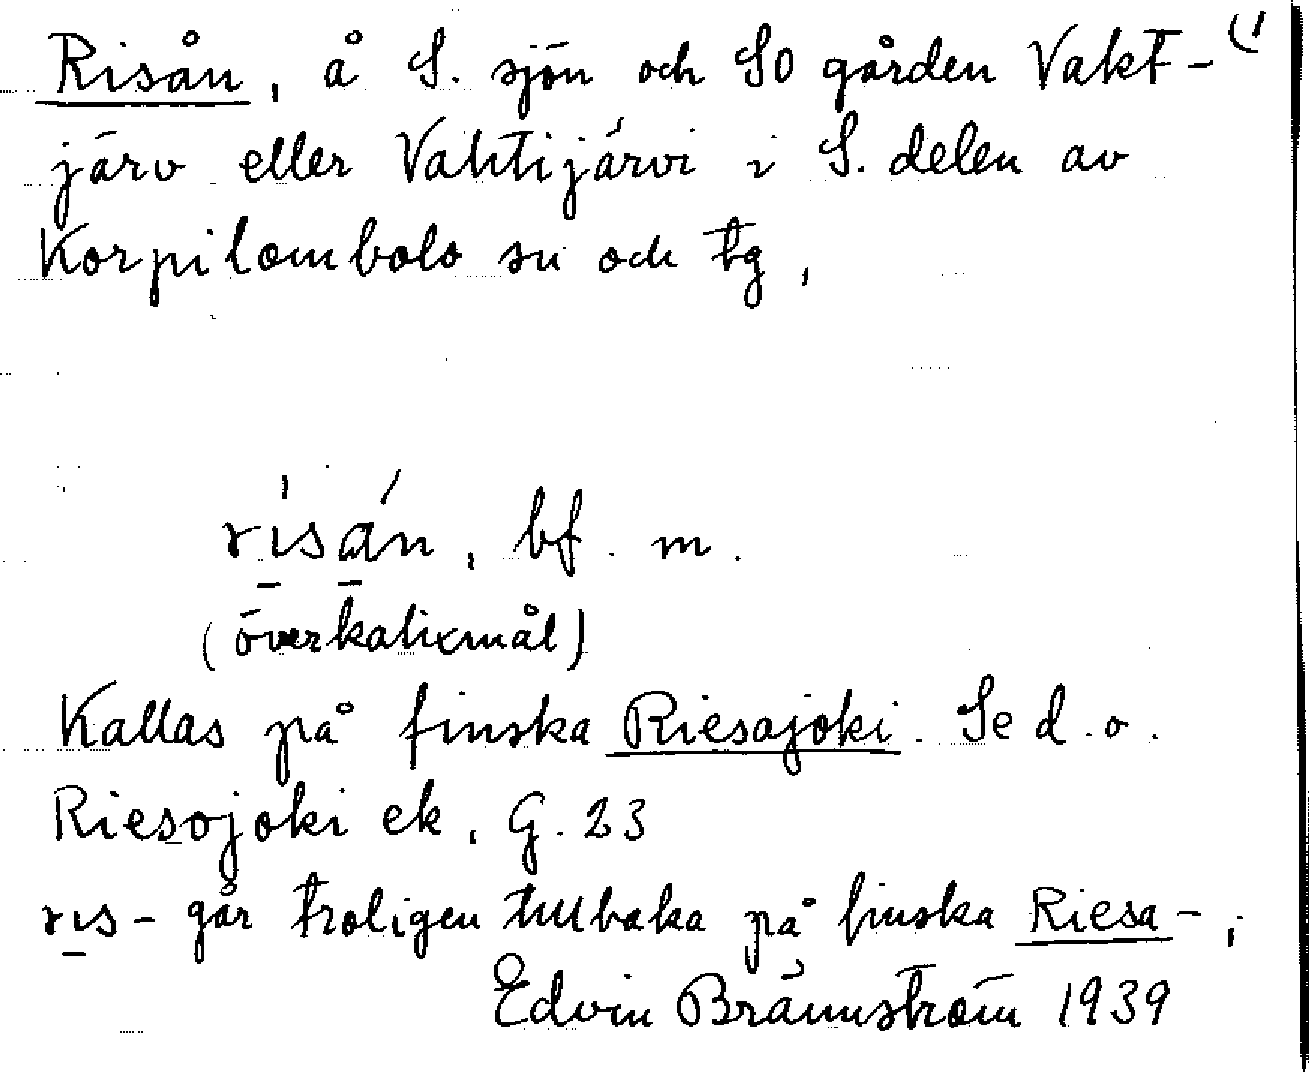 Risån, å S. sjön och SO gården Vakt- (1
järv eller Vahtijärvi i S. delen av
Korpilombolo sn och tg,
risán, bf. m.
(överkalixmål)
Kallas på finska Riesajoki. Se d.o.
Riesojoki ek, G. 23
ris- går troligen tillbaka på finska Riesa-,
Edvin Brännström 1939